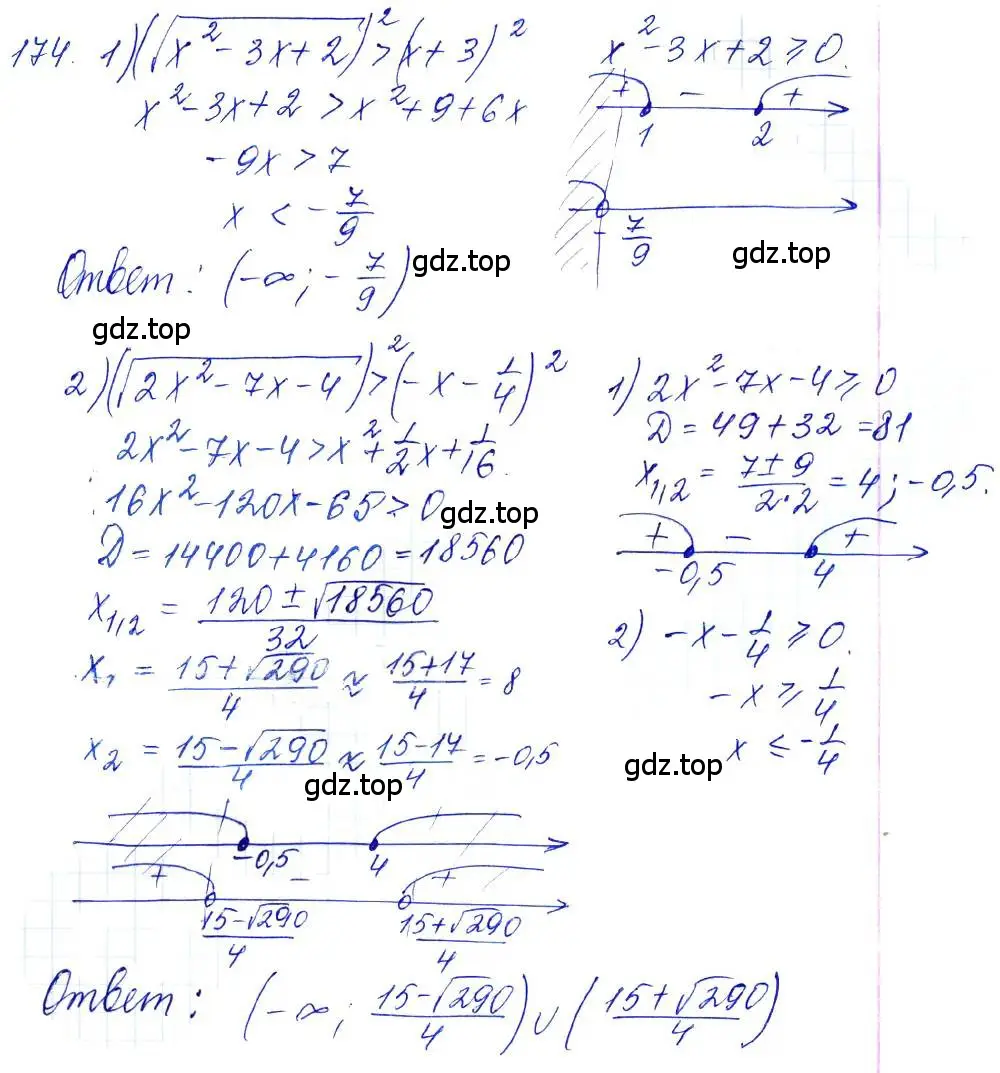 174. 1) (√(x² - 3x + 2))² > (x + 3)²
x² - 3x + 2 > x² + 9 + 6x
- 9x > 7
x < - 7/9
x² - 3x + 2 ⩾ 0.
+ - +
1 2
- 7/9
Ответ: (-∞; - 7/9)
gdz.top
gdz.top
gdz.top
2) (√(2x² - 7x - 4))² > (- x - 1/4)²
2x² - 7x - 4 > x² + 1/2 x + 1/16.
16x² - 120x - 65 > 0
gdz.top
D = 14400 + 4160 = 18560
x₁,₂ = (120 ± √18560)/32
x₁ = (15 + √290)/4 ≈ (15 + 17)/4 = 8
x₂ = (15 - √290)/4 ≈ (15 - 17)/4 = -0,5
gdz.top
1) 2x² - 7x - 4 ⩾ 0
D = 49 + 32 = 81
x₁,₂ = (7 ± 9)/(2·2) = 4; -0,5.
+ - +
-0,5 4
2) - x - 1/4 ⩾ 0.
- x ⩾ 1/4
x ⩽ - 1/4
gdz.top
-0,5 4
+ - +
(15 - √290)/4 (15 + √290)/4
Ответ: (-∞; (15 - √290)/4) ∪ ((15 + √290)/4)